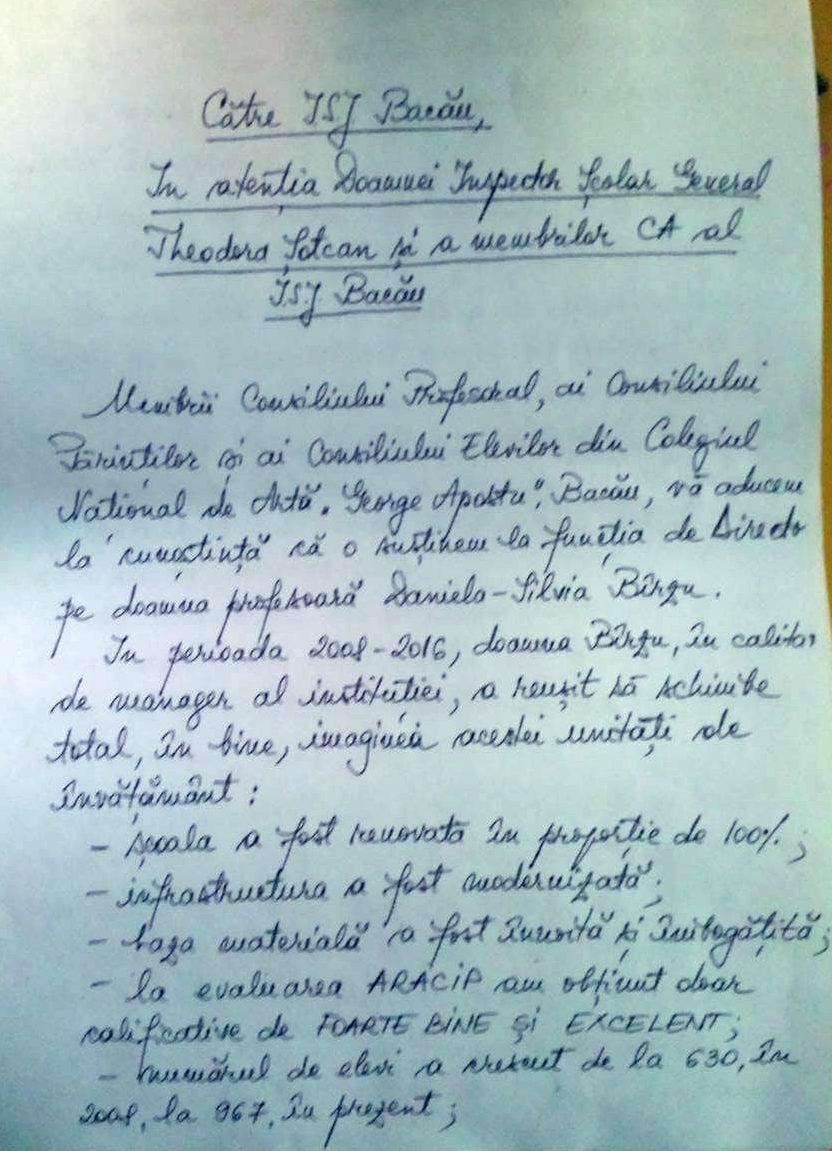 Către ISJ Bacău,
In atenția Doamnei Inspector Școlar General
Theodora Șotcan și a membrilor CA al
ISJ Bacău
Membrii Consiliului Profesoral, ai Consiliului
Părinților și ai Consiliului Elevilor din Colegiul
Național de Artă „George Apostu", Bacău, vă aducem
la cunoștință că o susținem la funcția de Directo
pe doamna profesoară Daniela-Silvia Bîrzu.
In perioada 2008-2016, doamna Bîrzu, în calitat
de manager al instituției, a reușit să schimbe
total, în bine, imaginea acestei unități de
învățământ:
- școala a fost renovată în proporție de 100%;
- infrastructura a fost modernizată;
- baza materială a fost înnoită și îmbogățită;
- la evaluarea ARACIP am obținut doar
calificative de FOARTE BINE și EXCELENT;
- numărul de elevi a crescut de la 630, în
2008, la 967, în prezent;